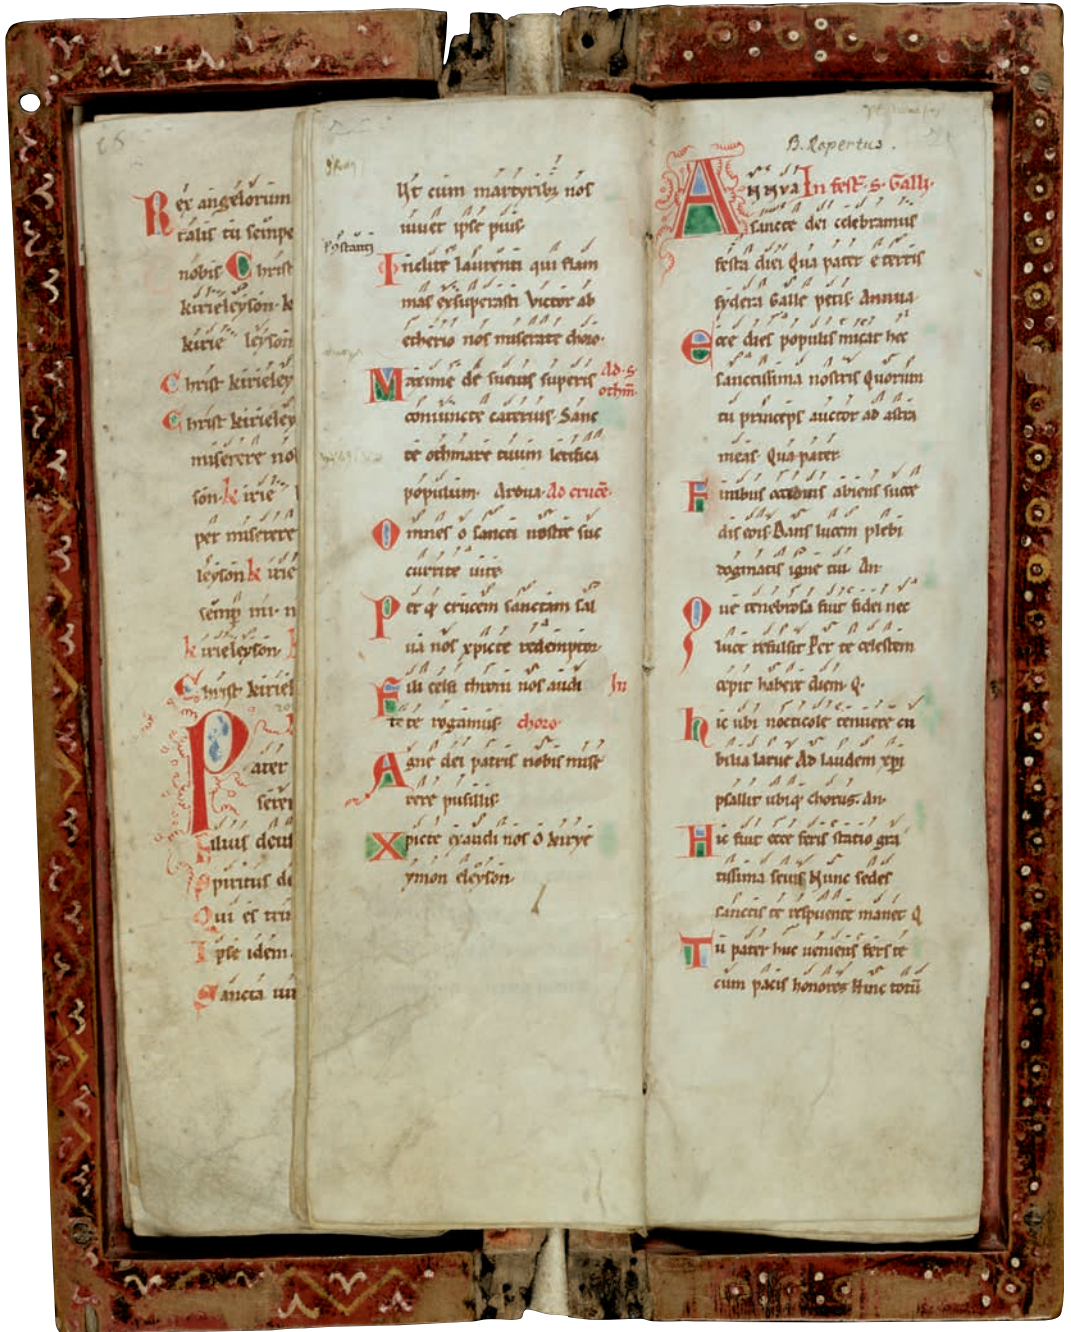 Rex angelorum
talis tu sempe
nobis Christ
kirieleyson. k
kirie leyson
Christ kirieley
Christ kirieley
miserere no
son. kirie
per miserere
leyson kirie
semp mi. n
kirieleyson.
Christ kiriel
Pater
seren
ilius deus
spiritus de
Qui es trin
Ipse idem.
Sancta
Ut cum martyribus nos
iuvet ipse pius.
Inclite laurenti qui flam
mas exsuperasti Victor ab
etherio nos miserate choro.
Maxime de suevis superis Ad. s. othm.
coniuncte catervis. Sanc
te othmare tuum letifica
populum. Ardua. Ad cruce.
Omnes o sancti nostre suc
currite vite
Per q crucem sanctam sal
va nos xpicte redemptor.
Fili celsi throni nos audi In
te te rogamus choro.
Agne dei patris nobis mise
rere pusillis.
Xpicte exaudi nos O kirye
ymon eleyson.
B. Ropertus.
ANNVA In fest. s. Galli.
sancte dei celebramus
festa diei Qua pater e terris
sydera Galle petis. Annua.
Ecce dies populis micat hec
sanctissima nostris Quorum
tu princeps auctor ad astra
meas. Qua pater
Finibus occiduis abiens succe
dis eois Dans lucem plebi
dogmatis igne tui. An.
Que tenebrosa fuit fidei nec
luce refulsit Per te celestem
cepit habere diem. Q.
hic ubi nocticole tenuere cu
bilia larve Ad laudem xpi
psallit ubiq chorus. An.
Hic fuit ecce feris statio gra
tissima sevis Nunc sedes
sanctis te respuente manet Q
Tu pater huc veniens fers te
cum pacis honores Hinc totum